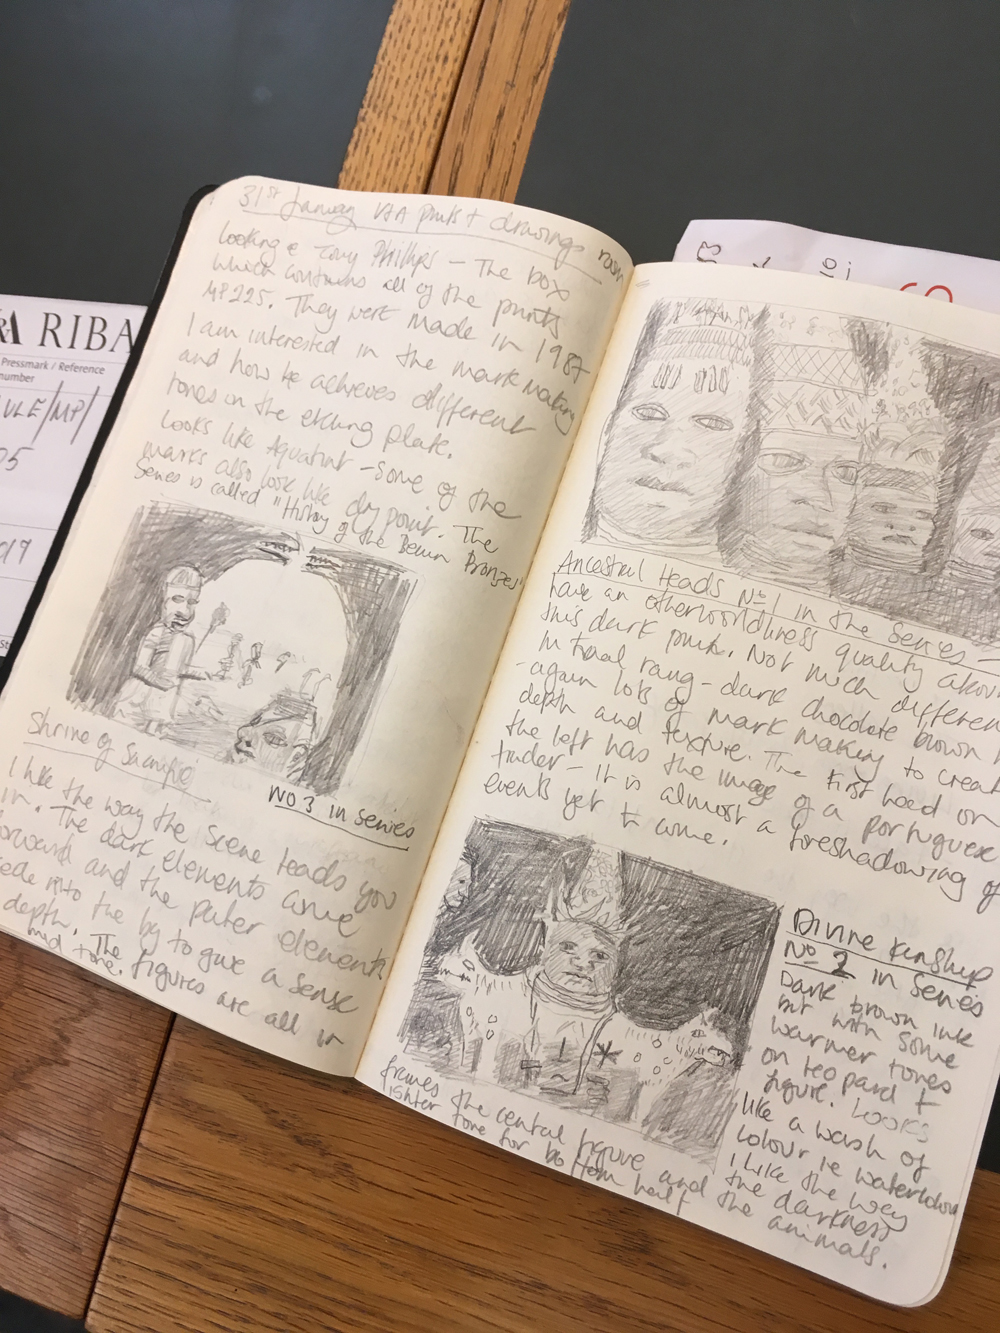 31st January V&A prints + drawings room
Looking @ Tony Phillips – The box
which contains all of the prints
MP225. They were made in 1987
I am interested in the mark making
and how he achieves different
tones on the etching plate.
Looks like Aquatint – some of the
marks also look like dry point. The
series is called "History of the Benin Bronzes"
Shrine of Sacrifice
NO 3 in series
I like the way the scene leads you
in. The dark elements come
forward and the paler elements
into the bg to give a sense
depth. The figures are all in
mid tone.
Ancestral Heads No 1 in the series –
have an otherworldliness quality
this dark print. Not much
in tonal rang – dark chocolate brown
– again lots of mark making to
depth and texture. The first head on
the left has the image of a portuguese
trader – it is almost a foreshadowing of
events yet to come.
Divine Kingship
No 2 in Series
Dark brown ink
but with some
warmer tones
on leopard +
figure. Looks
like a wash of
colour ie watercolour
I like the way
the darkness
frames the central figure and the animals.
lighter tone for bottom half
RIBA
Pressmark / Reference
number